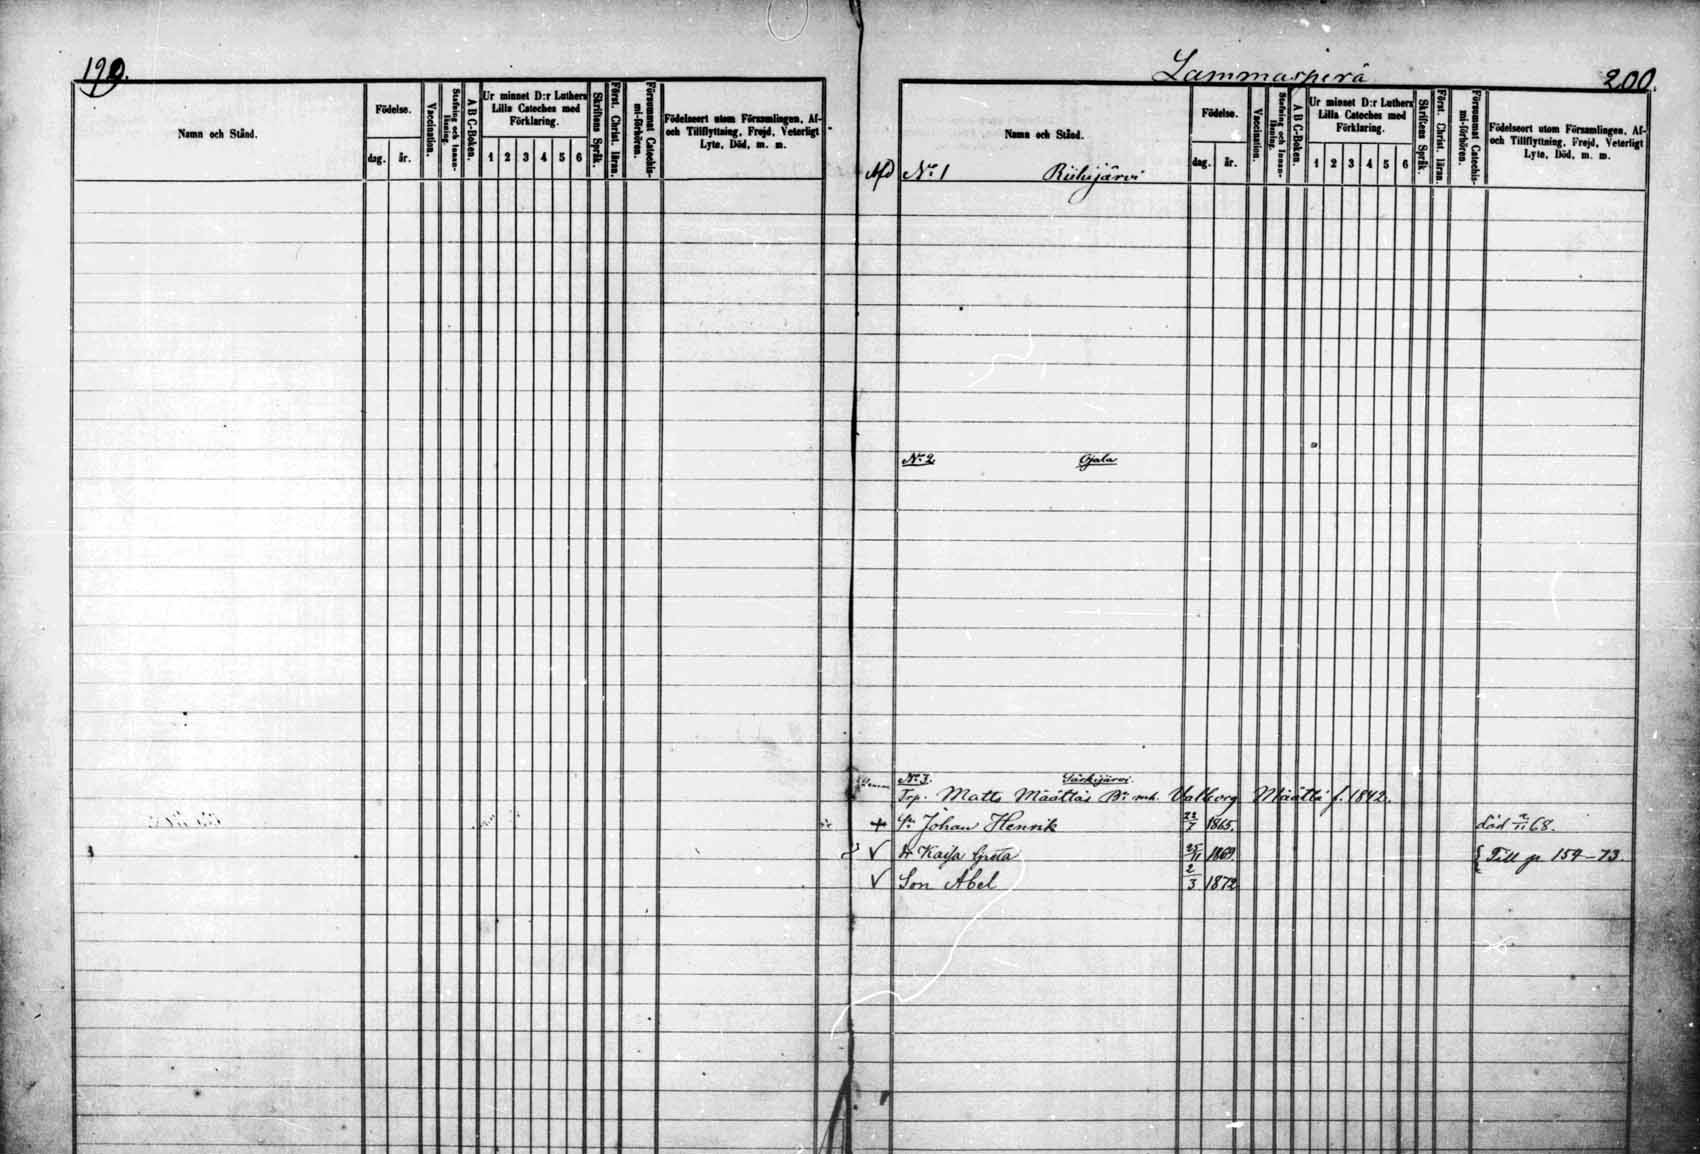 199.
Namn och Stånd.
Födelse.
dag. år.
Vaccination.
Stafning och Innan-läsning.
A B C-Boken.
Ur minnet D:r Luthers
Lilla Cateches med
Förklaring.
1 2 3 4 5 6
Skriftens Språk.
Först. Christ. läran.
Försummat Catechis-mi-förhören.
Födelseort utom Församlingen, Af-
och Tillflyttning, Frejd, Veterligt
Lyte, Död, m. m.
Lammasperä
200.
Namn och Stånd.
Födelse.
dag. år.
Vaccination.
Stafning och Innan-läsning.
A B C-Boken.
Ur minnet D:r Luthers
Lilla Cateches med
Förklaring.
1 2 3 4 5 6
Skriftens Språk.
Först. Christ. läran.
Försummat Catechis-mi-förhören.
Födelseort utom Församlingen, Af-
och Tillflyttning, Frejd, Veterligt
Lyte, Död, m. m.
No 1 Riihijärvi
No 2 Ojala
No 3. Särkijärvi.
Trp. Matts Määttäs Br. Valborg Määttä f. 1842.
+ Sn Johan Henrik 22/7 1865. död 2/11 68.
V Dr Kaisa Greta 25/11 1869. Till p. 154-73.
V Son Abel 2/3 1872